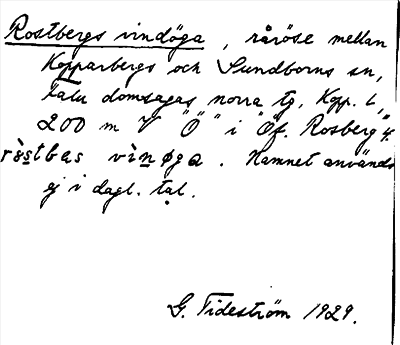 Rostbergs vindöga, råröse mellan
Kopparbergs och Sundborns sn,
Falu domsagas norra tg, Kopp. l,
200 m V "Ö" i "Öf. Rosberg" k.
rὸstbas vìnøga. Namnet används
ej i dagl. tal.
G. Tideström 1929.